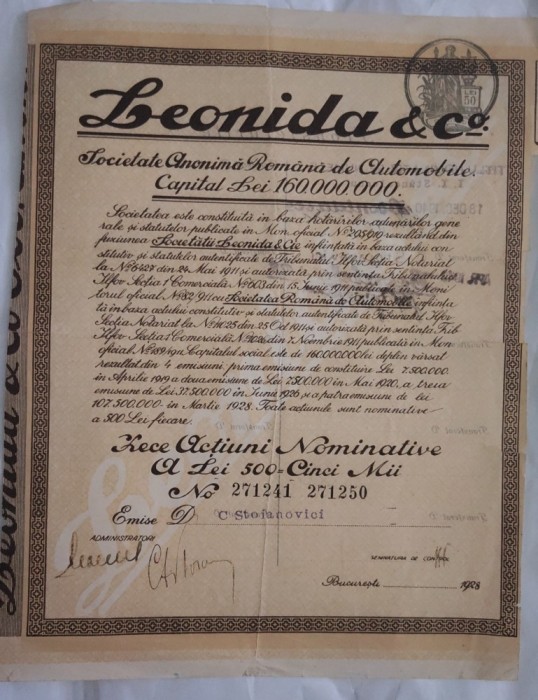 LEI
50
Leonida & Co.
Societate Anonimă Română de Automobile.
Capital Lei 160.000.000.
Societatea este constituită în baza hotărîrilor adunărilor gene
rale și statutelor publicate în Mon. oficial No 295/919 rezultând din
fuziunea Societății Leonida & Cie înființată în baza actului con
stitutiv și statutelor autentificate de Tribunalul Ilfov Secția Notariat
la No 6427 din 24 Mai 1911 și autorizată prin sentința Tribunalului
Ilfov Secția I Comercială No 603 din 15 Iunie 1911 publicate în Moni
torul oficial No 82/911 cu Societatea Română de Automobile înființa
tă în baza actului constitutiv și statutelor autentificate de Tribunalul Ilfov
Secția Notariat la No 11025 din 25 Oct 1911 și autorizată prin sentința Trib
Ilfov Secția I Comercială No 1026 din 7 Noembrie 1911 publicată în Mon
oficial No 189/911 Capitalul social este de 160000000 lei deplin vărsat
rezultat din 4 emisiuni, prima emisiune de constituire Lei 7.500.000
în Aprilie 1919 a doua emisiune de Lei 7.500.000 în Mai 1920, a treia
emisiune de Lei 37.500.000 în Iunie 1926 și a patra emisiune de lei
107.500.000 în Martie 1928. Toate acțiunile sunt nominative
a 500 Lei fiecare.
Zece Acțiuni Nominative
A Lei 500=Cinci Mii
No 271241 271250
Emise D C Stefanovici
ADMINISTRATORI
SEMNATURA DE CONTROL
București 1928
Leonida & Co